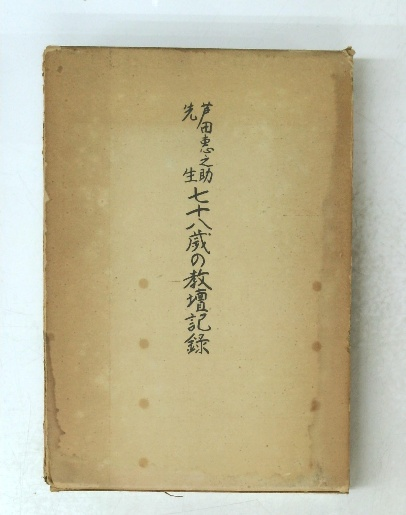 芦田恵之助
先生
七十八歳の教壇記録